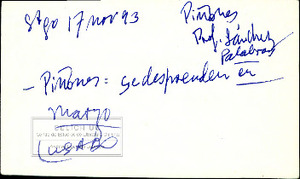 Stgo 17 nov 93
Piñones
Prof. Sánchez
Palabras
- Piñones: se desprenden en
marzo
(USADO)